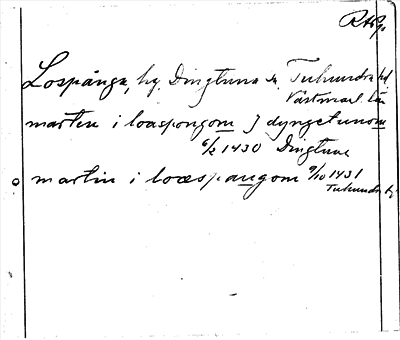 RAp.
Lospånga, by, Dingtuna sn, Tuhundra hd
Västmanl. län
marten i loaspongom J dyngetunom
6/2 1430 Dingtuna
martin i loæspangom 9/10 1431
Tuhundra h